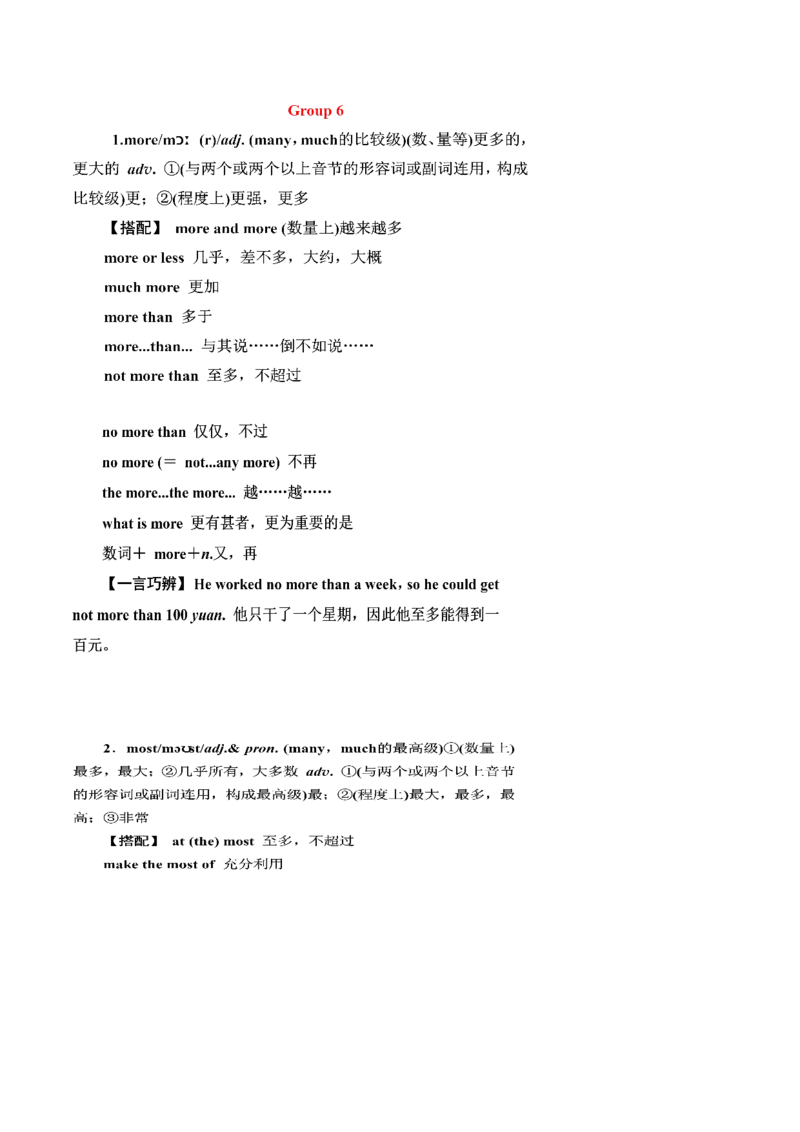 Group 6
1.more/mɔː (r)/adj. (many，much的比较级)(数、量等)更多的，
更大的 adv. ①(与两个或两个以上音节的形容词或副词连用，构成
比较级)更；②(程度上)更强，更多
【搭配】 more and more (数量上)越来越多
more or less 几乎，差不多，大约，大概
much more 更加
more than 多于
more...than... 与其说……倒不如说……
not more than 至多，不超过
no more than 仅仅，不过
no more (＝ not...any more) 不再
the more...the more... 越……越……
what is more 更有甚者，更为重要的是
数词＋ more＋n.又，再
【一言巧辨】He worked no more than a week，so he could get
not more than 100 yuan. 他只干了一个星期，因此他至多能得到一
百元。
2．most/məʊst/adj.& pron. (many，much的最高级)①(数量上)
最多，最大；②几乎所有，大多数 adv. ①(与两个或两个以上音节
的形容词或副词连用，构成最高级)最；②(程度上)最大，最多，最
高；③非常
【搭配】 at (the) most 至多，不超过
make the most of 充分利用